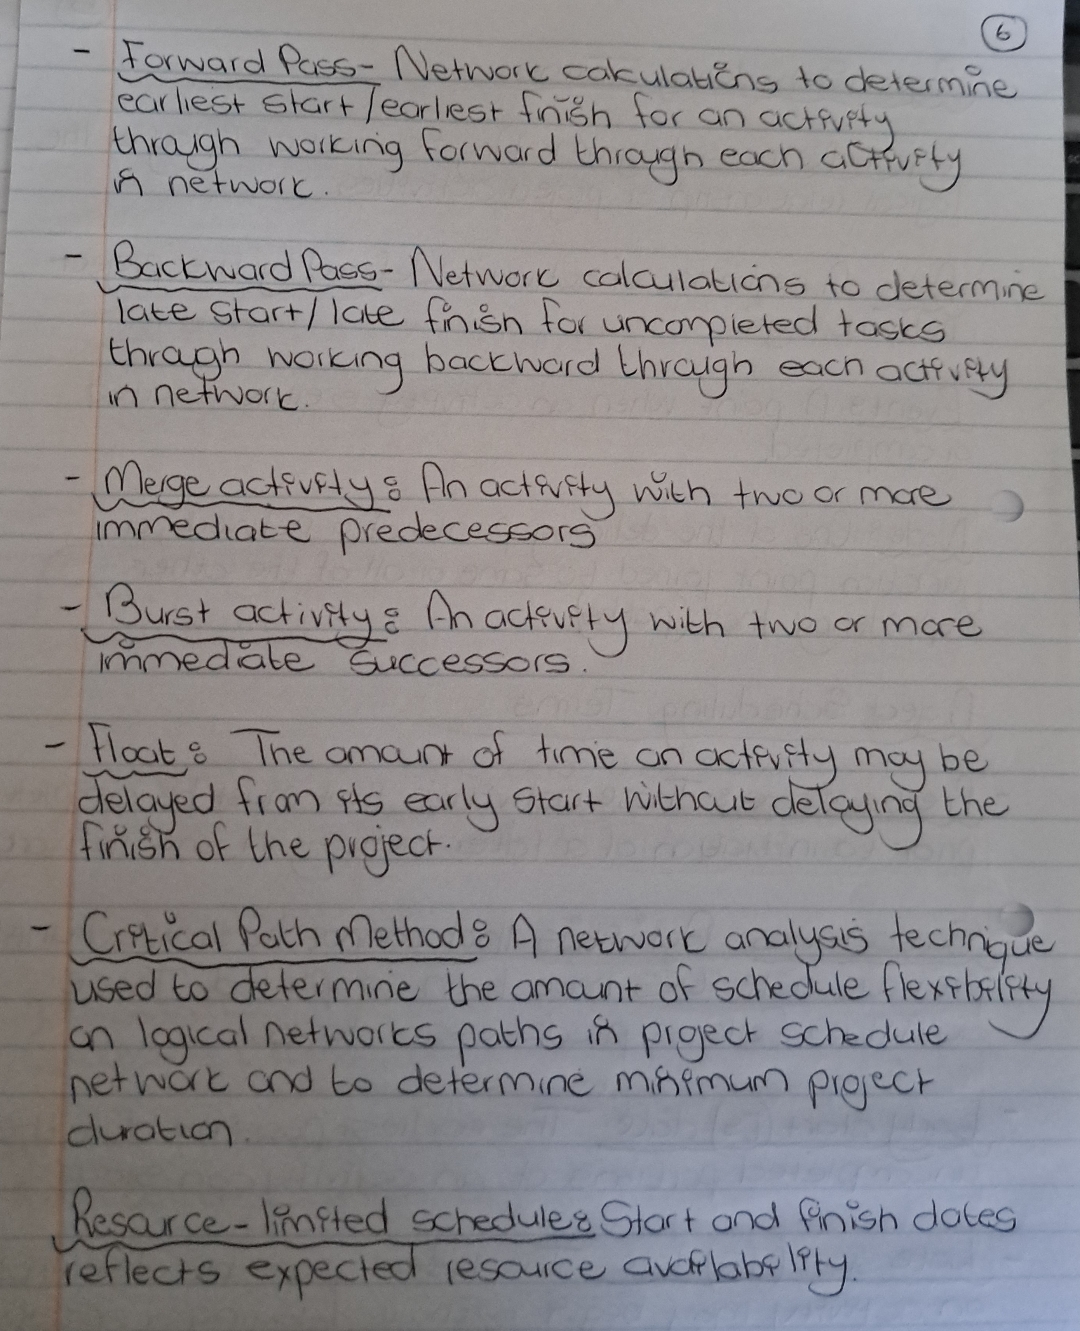 6
- Forward Pass- Network calculations to determine
earliest start/earliest finish for an activity
through working forward through each activity
in network.
- Backward Pass- Network calculations to determine
late start/late finish for uncompleted tasks
through working backward through each activity
in network.
- Merge activity: An activity with two or more
immediate predecessors
- Burst activity: An activity with two or more
immediate successors.
- Float: The amount of time an activity may be
delayed from its early start without delaying the
finish of the project.
- Critical Path Method: A network analysis technique
used to determine the amount of schedule flexibility
on logical networks paths in project schedule
network and to determine minimum project
duration.
Resource-limited schedule: Start and finish dates
reflects expected resource availability.